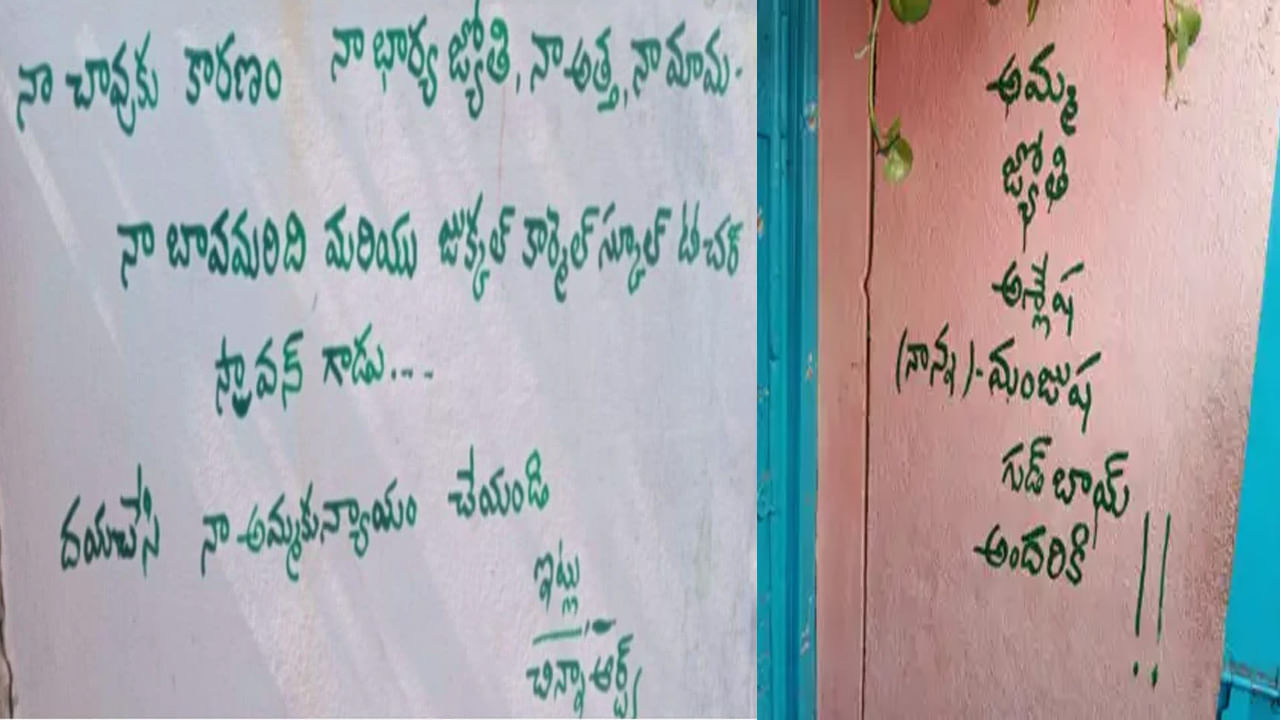 నా చావుకు కారణం నా భార్య జ్యోతి, నా అత్త, నా మామ.
నా బావమరిది మరియు జుక్కల్ కార్మెల్ స్కూల్ టీచర్
స్రావన్ గాడు...
దయచేసి నా అమ్మకు న్యాయం చేయండి
ఇట్లు
చిన్నా ఆర్ట్స్
అమ్మ
జ్యోతి
అశ్లేష
(నాన్న)-మంజుష
గుడ్ బాయ్
అందరికి !!